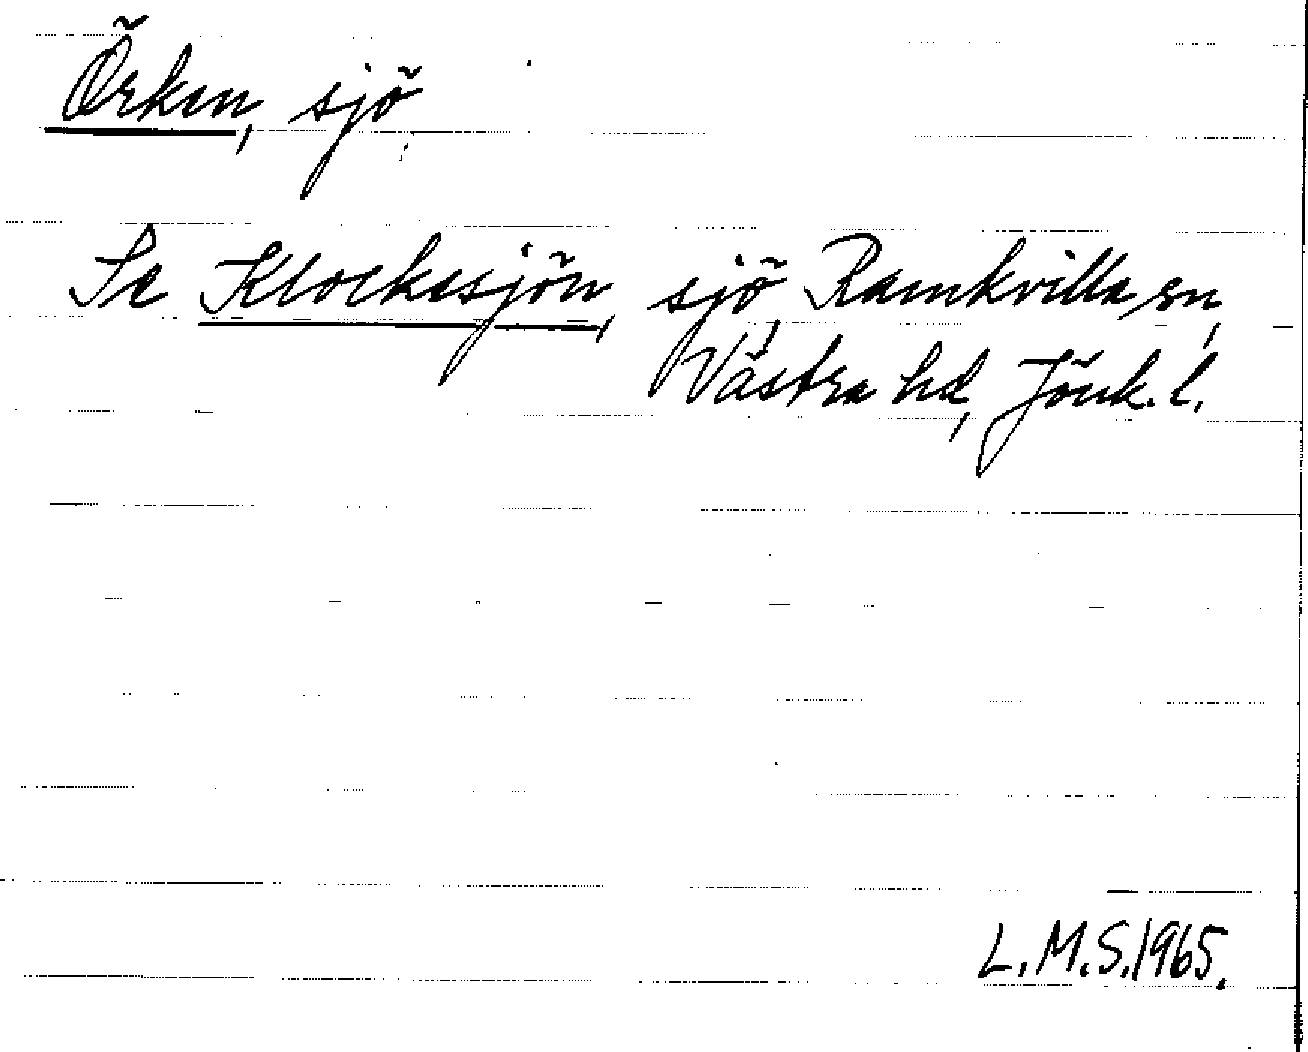 Örken, sjö
Se Klockesjön, sjö, Ramkvilla sn,
Västra hd, Jönk. l.
L.M.S. 1965.